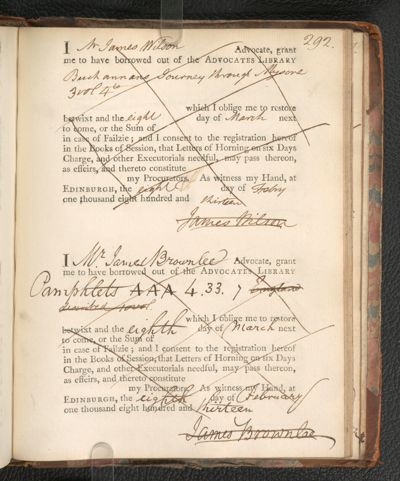 292.
I Mr James Wilson Advocate, grant
me to have borrowed out of the ADVOCATES LIBRARY
Buchannans Journey through Mysore
3 vol 4to
which I oblige me to restore
betwixt and the eight day of March next
to come, or the Sum of
in case of Failzie; and I consent to the registration hereof
in the Books of Session, that Letters of Horning on six Days
Charge, and other Executorials needful, may pass thereon,
as effeirs, and thereto constitute
my Procurators. As witness my Hand, at
EDINBURGH, the eight day of Febry
one thousand eight hundred and thirteen
James Wilson
I Mr James Brownlee Advocate, grant
me to have borrowed out of the ADVOCATES LIBRARY
Pamphlets AAA 4. 33. 7
which I oblige me to restore
betwixt and the eighth day of March next
to come, or the Sum of
in case of Failzie; and I consent to the registration hereof
in the Books of Session, that Letters of Horning on six Days
Charge, and other Executorials needful, may pass thereon,
as effeirs, and thereto constitute
my Procurators. As witness my Hand, at
EDINBURGH, the eighth day of February
one thousand eight hundred and thirteen
James Brownlee